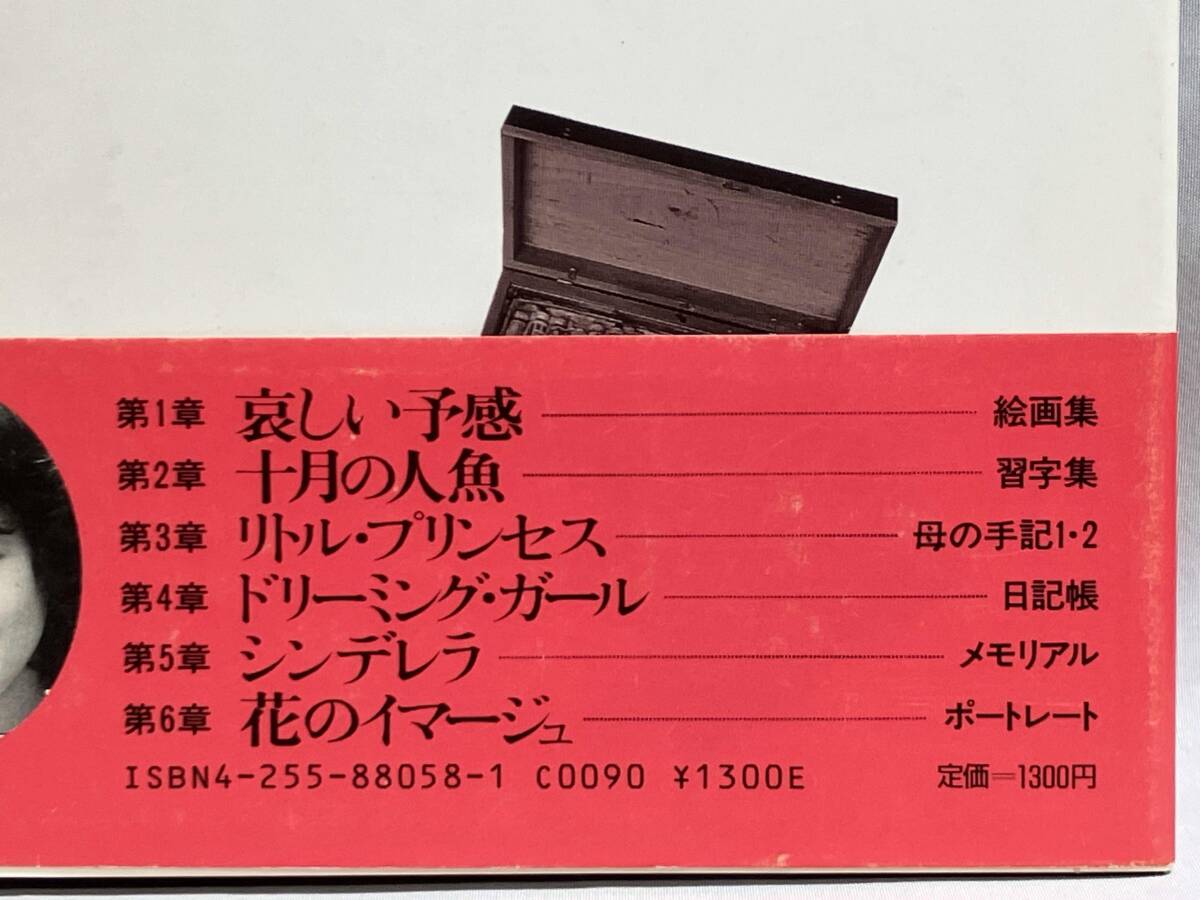 第1章 哀しい予感 絵画集
第2章 十月の人魚 習字集
第3章 リトル・プリンセス 母の手記1・2
第4章 ドリーミング・ガール 日記帳
第5章 シンデレラ メモリアル
第6章 花のイマージュ ポートレート
ISBN4-255-88058-1 C0090 ¥1300E 定価=1300円